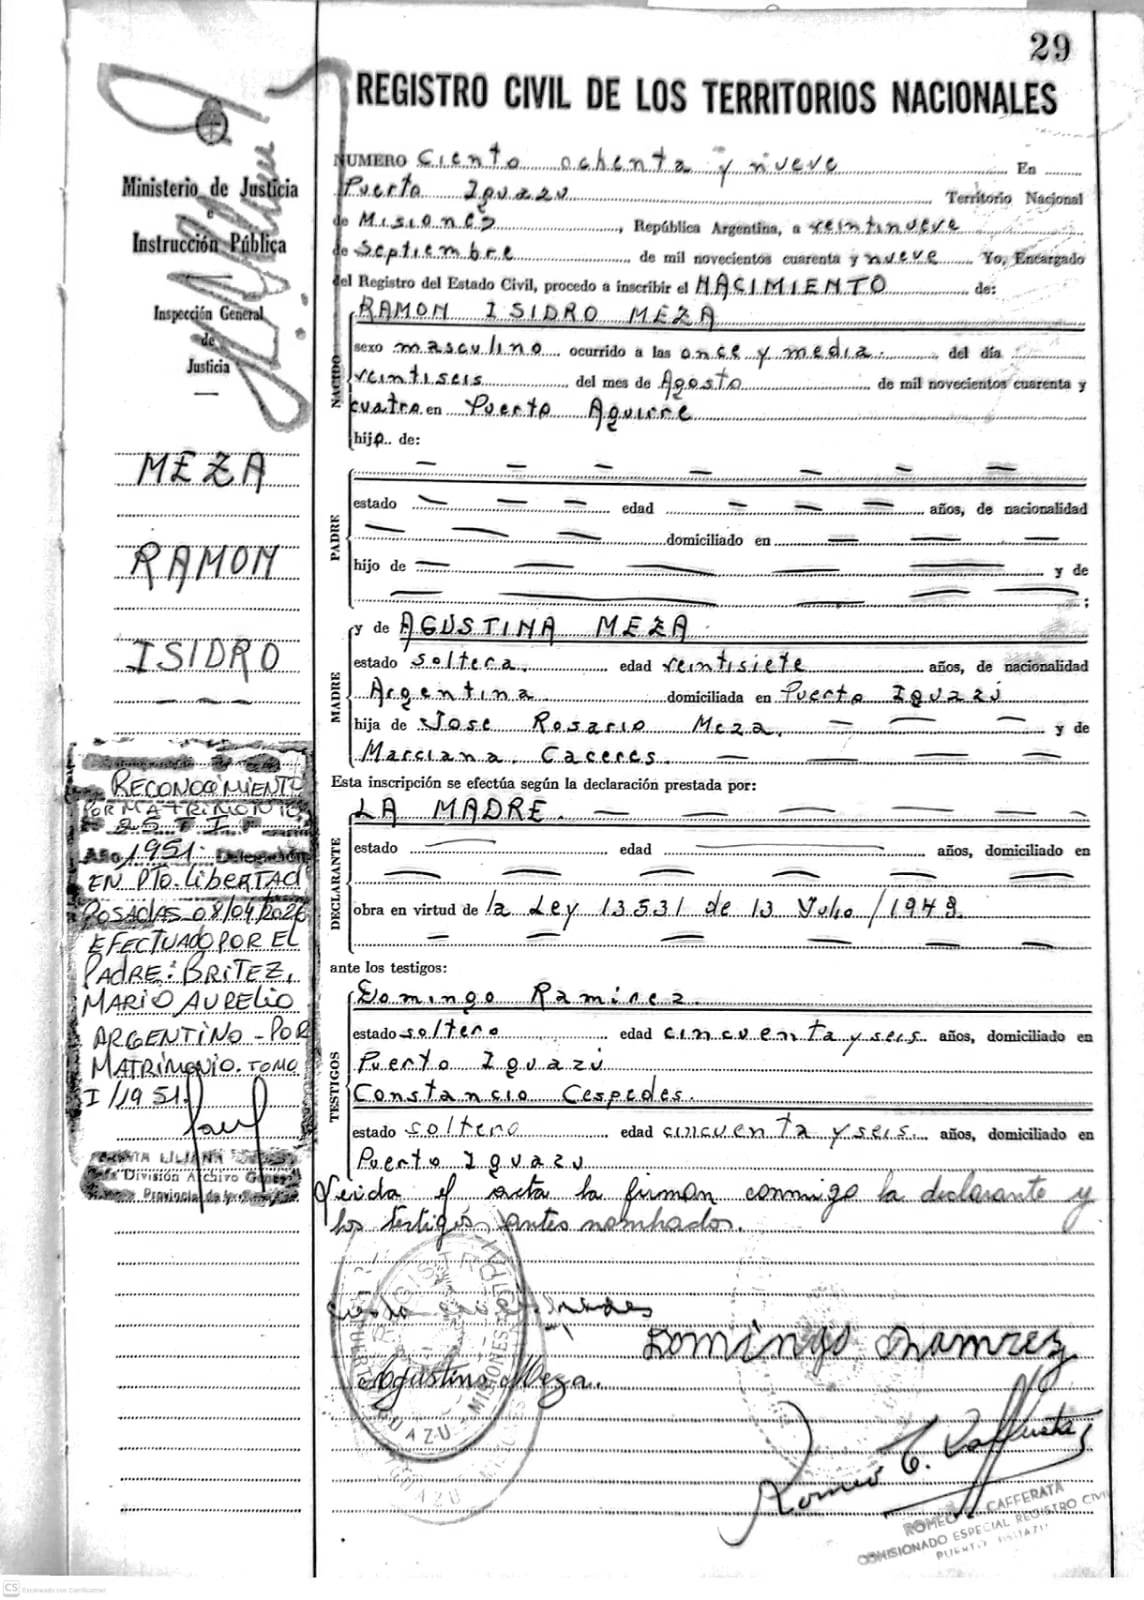 29
REGISTRO CIVIL DE LOS TERRITORIOS NACIONALES
Ministerio de Justicia
e
Instrucción Pública
Inspección General
de
Justicia
MEZA
RAMON
ISIDRO
RECONOCIMIENTO
POR MATRIMONIO
Año 1951 Delegación
EN PTO. LIBERTAD
POSADAS 08/04/202
EFECTUADO POR EL
PADRE: BRITEZ,
MARIO AURELIO
ARGENTINO - POR
MATRIMONIO. TOMO
I/1951.
LILIANA
División Archivo General
Provincial de
NUMERO Ciento ochenta y nueve En
Puerto Iguazú Territorio Nacional
de Misiones, República Argentina, a veintinueve
de Septiembre de mil novecientos cuarenta y nueve Yo, Encargado
del Registro del Estado Civil, procedo a inscribir el NACIMIENTO de:
NACIDO
RAMON ISIDRO MEZA
sexo masculino ocurrido a las once y media. del día
veintiseis del mes de Agosto de mil novecientos cuarenta y
cuatro en Puerto Aguirre
hijo de:
PADRE
estado edad años, de nacionalidad
domiciliado en
hijo de y de
;
MADRE
y de AGUSTINA MEZA
estado soltera. edad veintisiete años, de nacionalidad
Argentina domiciliada en Puerto Iguazú
hija de Jose Rosario Meza. y de
Marciana Caceres.
Esta inscripción se efectúa según la declaración prestada por:
DECLARANTE
LA MADRE.
estado edad años, domiciliado en
obra en virtud de la Ley 13531 de 13 Julio/1949.
ante los testigos:
TESTIGOS
Domingo Ramirez.
estado soltero edad cincuenta y seis años, domiciliado en
Puerto Iguazú
Constancio Cespedes.
estado soltero edad cincuenta y seis años, domiciliado en
Puerto Iguazú
Leida el acta la firman conmigo la declarante y
los testigos antes nombrados.
Domingo Ramirez
Agustina Meza.
IGUAZU - MISIONES
Romeo C. Cafferata
ROMEO CAFFERATA
COMISIONADO ESPECIAL REGISTRO CIVIL
CS Escaneado con CamScanner